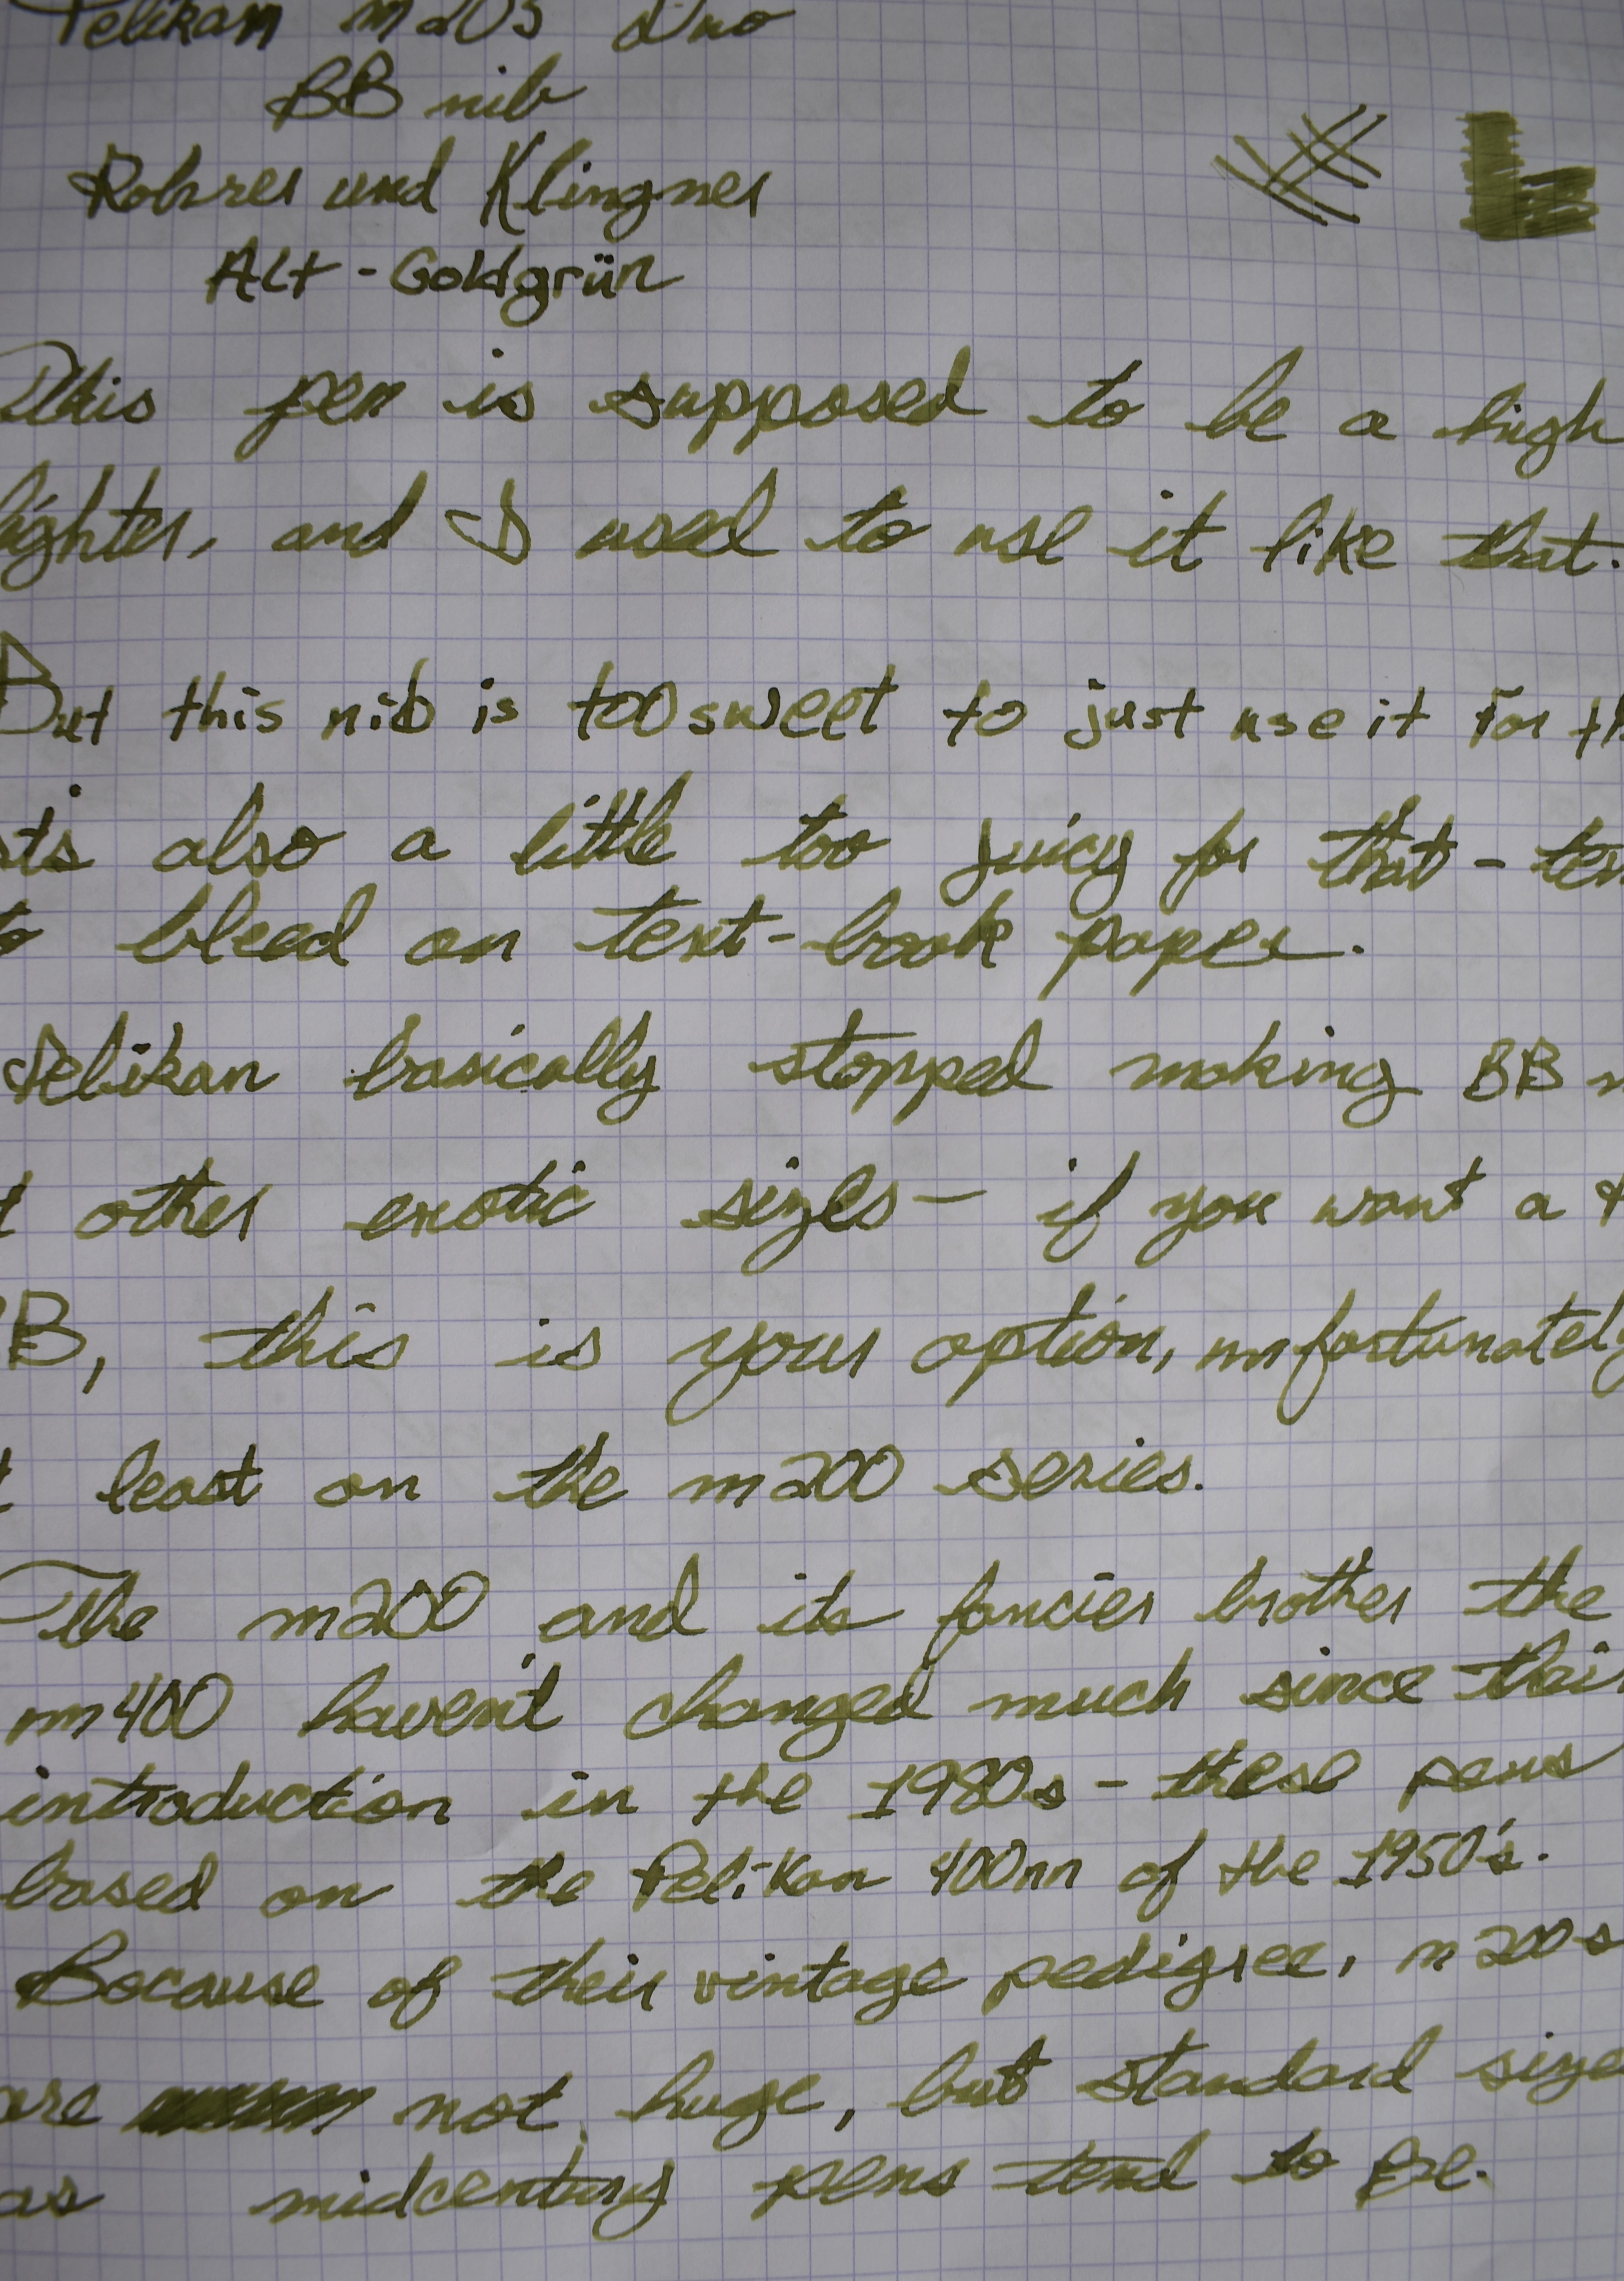 Pelikan m205 Duo
BB nib
Rohrer und Klingner
Alt-Goldgrün
This pen is supposed to be a high
lighter, and I used to use it like that.
But this nib is too sweet to just use it for th
its also a little too juicy for that - ten
to bleed on text-book paper.
Pelikan basically stopped making BB n
t other exotic sizes — if you want a
BB, this is your option, unfortunately
t least on the m200 series.
The m200 and its fancier brother the
m400 haven't changed much since their
introduction in the 1980s - these pens
based on the Pelikan 400nn of the 1950's.
Because of their vintage pedigree, m200s
are not huge, but standard size
as midcentury pens tend to be.